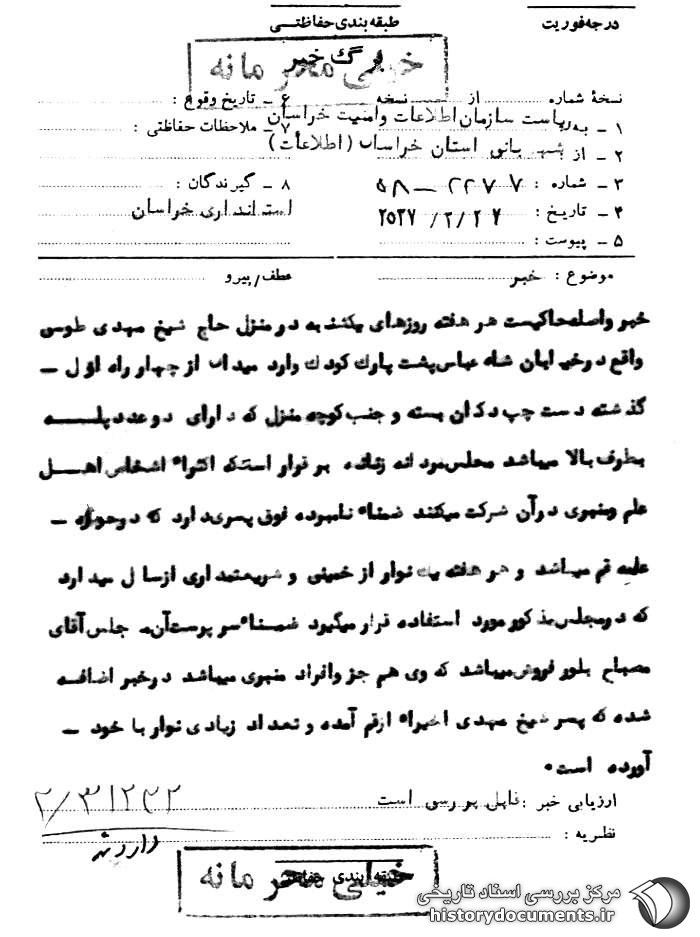 درجه فوریت
طبقه بندی حفاظتی
خیلی محرمانه
برگ خبر
نسخهٔ شماره از نسخه
۱ ـ به: ریاست سازمان اطلاعات وامنیت خراسان
۲ ـ از: شهربانی استان خراسان (اطلاعات)
۳ ـ شماره : ۲۲۷۷ ـ ۵۸
۴ ـ تاریخ: ۲۵۳۷/۲/۲۷
۵ ـ پیوست :
۶ ـ تاریخ وقوع :
۷ ـ ملاحظات حفاظتی :
۸ ـ گیرندگان :
استانداری خراسان
موضوع : خبر
عطف/پیرو
خبر واصله حاکیست هر هفته روزهای یکشنبه در منزل حاج شیخ مهدی طوسی
واقع در خیابان شاه عباس پشت پارک کودک وارد میدان از چهار راه اول ـ
گذشته دست چپ دکان بسته و جنب کوچه منزل که دارای دو عدد پلـــه
بطرف بالا میباشد مجلس مردانه زنانه برقرار است که اکثرا" اشخاص اهـــل
علم ومنبری در آن شرکت میکنند ضمنا" نامبرده فوق پسری دارد که در حوزه ـ
علمیه قم میباشد و هر هفته یک نوار از خمینی و شریعتمداری ارسال میدارد
که در مجلس مذکور مورد استفاده قرار میگیرد ضمنا" سرپرست آن مجلس آقای
مصباح بلور فروش میباشد که وی هم جزوافراد منبری میباشد در خبر اضافــه
شده که پسر شیخ مهدی اخیرا" ازقم آمده و تعداد زیادی نوار با خود ـ
آورده است .
ارزیابی خبر : قابل بررسی است
نظریه :
طبقه بندی حفاظتی
خیلی محرمانه
مرکز بررسی اسناد تاریخی
historydocuments.ir